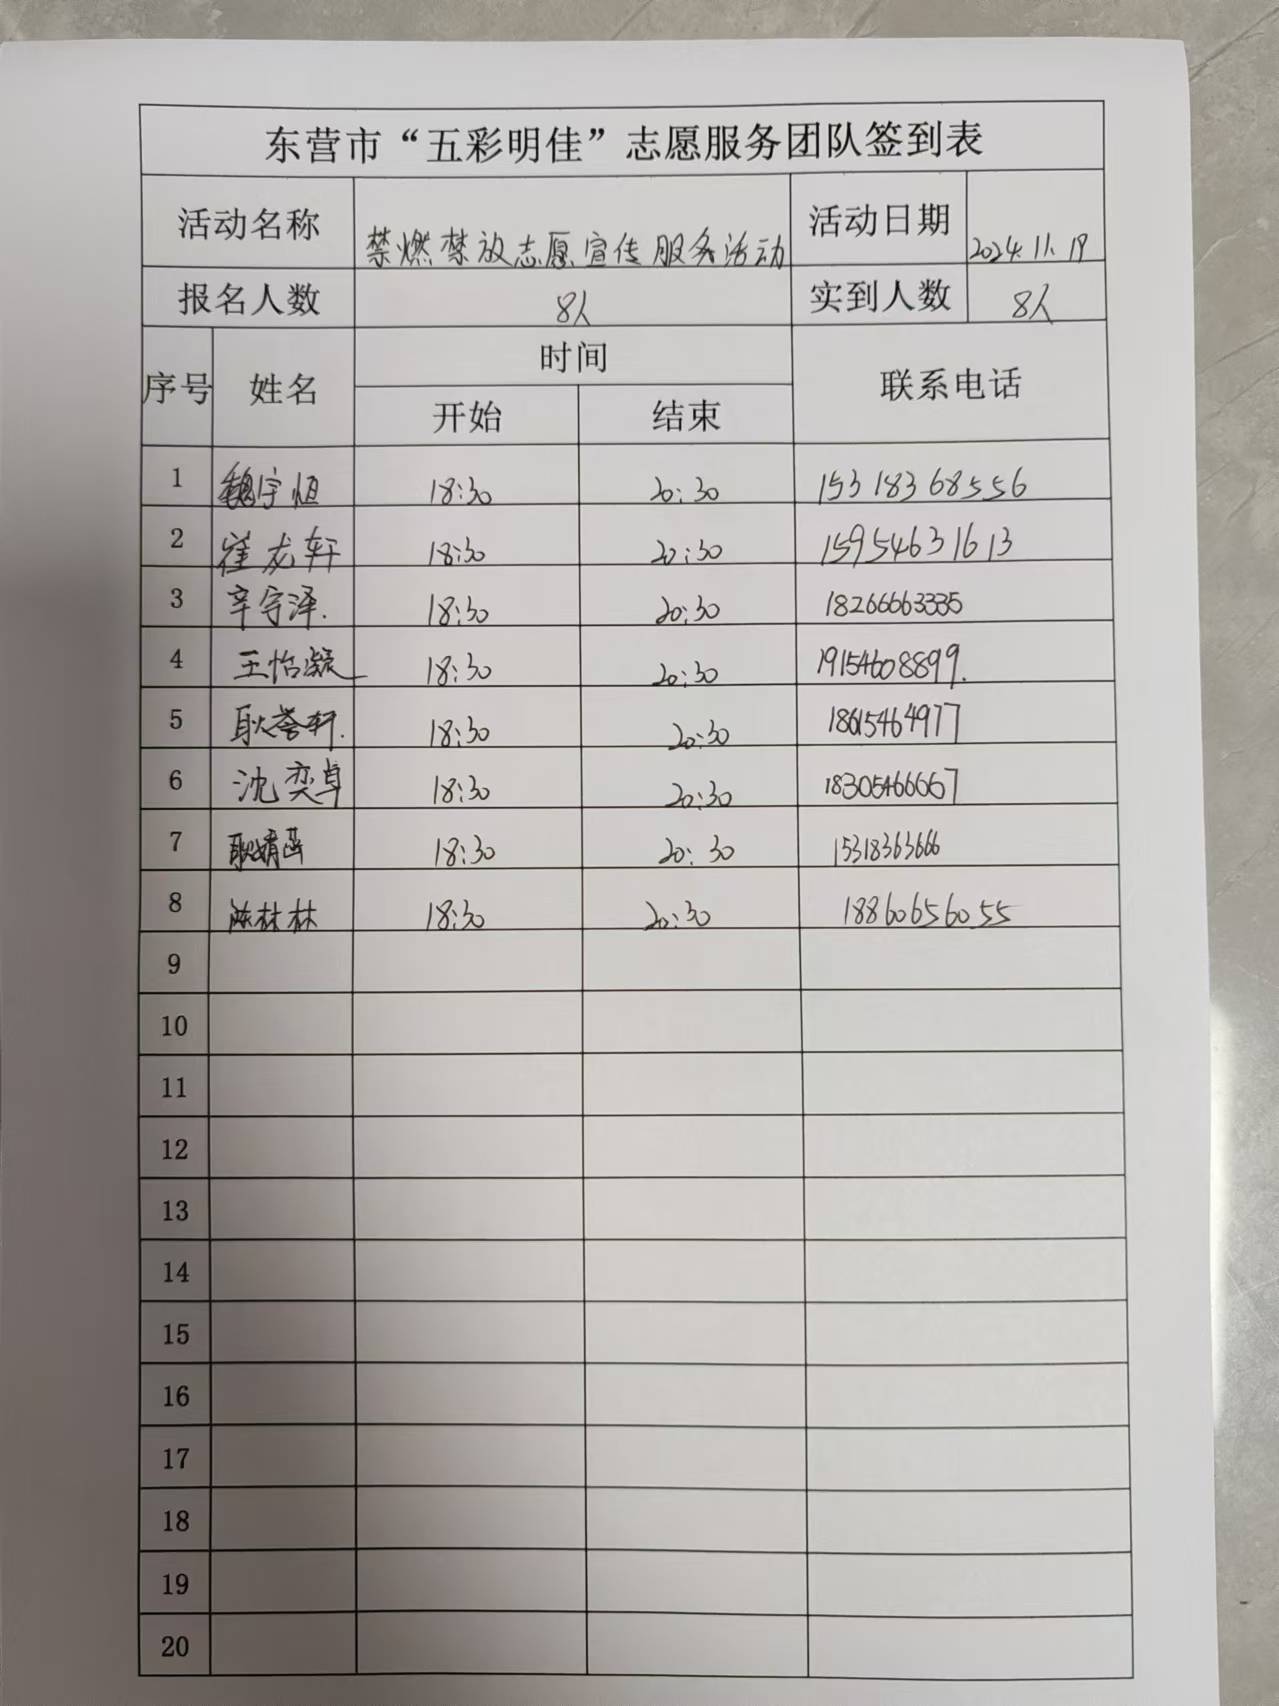 东营市“五彩明佳”志愿服务团队签到表
活动名称 禁燃禁放志愿宣传服务活动 活动日期 2024.11.19
报名人数 8人 实到人数 8人
序号 姓名 时间 联系电话
开始 结束
1 魏宇恒 18:30 20:30 15318368556
2 崔龙轩 18:30 20:30 15954631613
3 辛宇泽. 18:30 20:30 18266663335
4 王怡凝 18:30 20:30 19154608899.
5 耿誉轩. 18:30 20:30 18615464977
6 沈奕卓 18:30 20:30 18305466667
7 耿婧函 18:30 20:30 15318363666
8 陈林林 18:30 20:30 18860656055
9
10
11
12
13
14
15
16
17
18
19
20